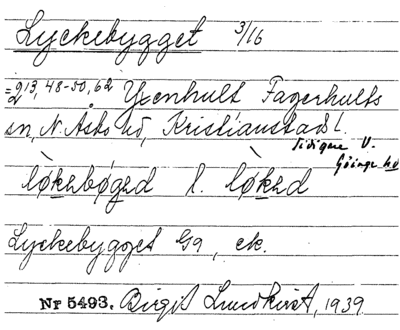 Lyckebygget 3/16
=2 13, 48-50, 62 Yxenhult Fagerhults
sn, N. Åsbo hd, Kristianstads l.
tidigare V.
Göinge hd
lø̀kəbøgəd l. lø̀kəd
Lyckebygget Ga, ek.
Nr 5493. Birgit Lundkvist, 1939